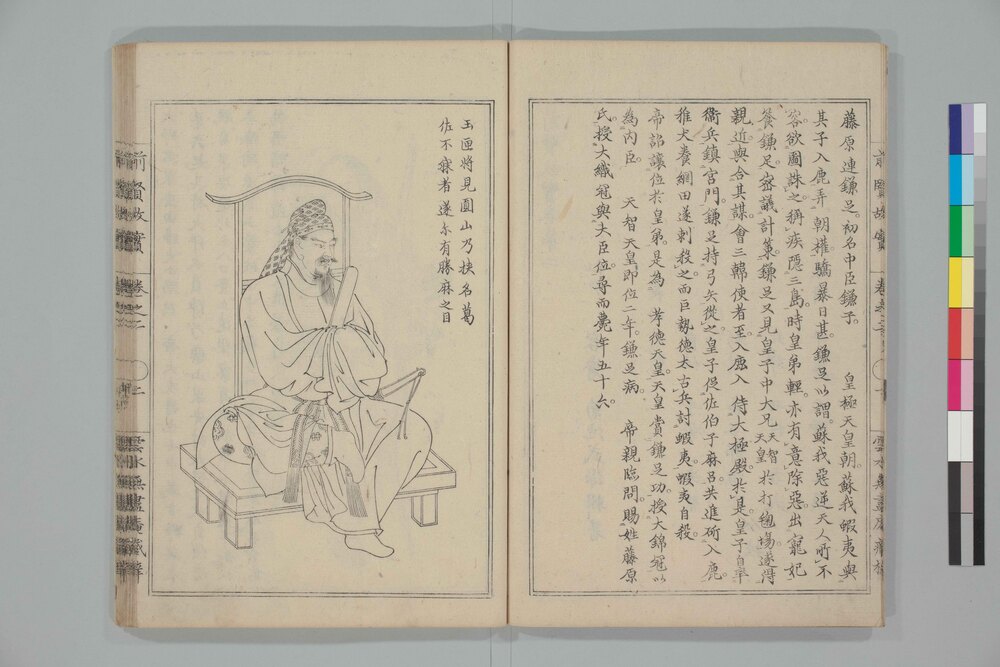 藤原連鎌足。初名中臣鎌子。　皇極天皇朝。蘇我蝦夷與
其子入鹿弄　朝權驕暴日甚。鎌足以謂。蘇我惡逆天人所不
容。欲圖誅之。稱疾隱三島。時皇弟輕。亦有意除惡。出寵妃
養鎌足。密議計策。鎌足又見皇子中大兄天智天皇於打毱場。遂得
親近。與合其謀。會三韓使者至。入鹿入　侍大極殿。於是皇子自率
衞兵鎮宮門。鎌足持弓矢從之。皇子促佐伯子麻呂共進斫入鹿。
稚犬養網田遂刺殺之。而巨勢德太古。兵討蝦夷。蝦夷自殺。
帝詔讓位於皇弟。是為　孝德天皇。天皇賞鎌足功。授大錦冠。以
為內臣。　天智天皇即位二年。鎌足病。　帝親臨問。賜姓藤原
氏。授大織冠與大臣位。尋而薨。年五十六。
玉匣將見圓山乃狹名葛
佐不寐者遂尓有勝麻之目
前賢故實　卷之一
雲水無盡庵藏梓